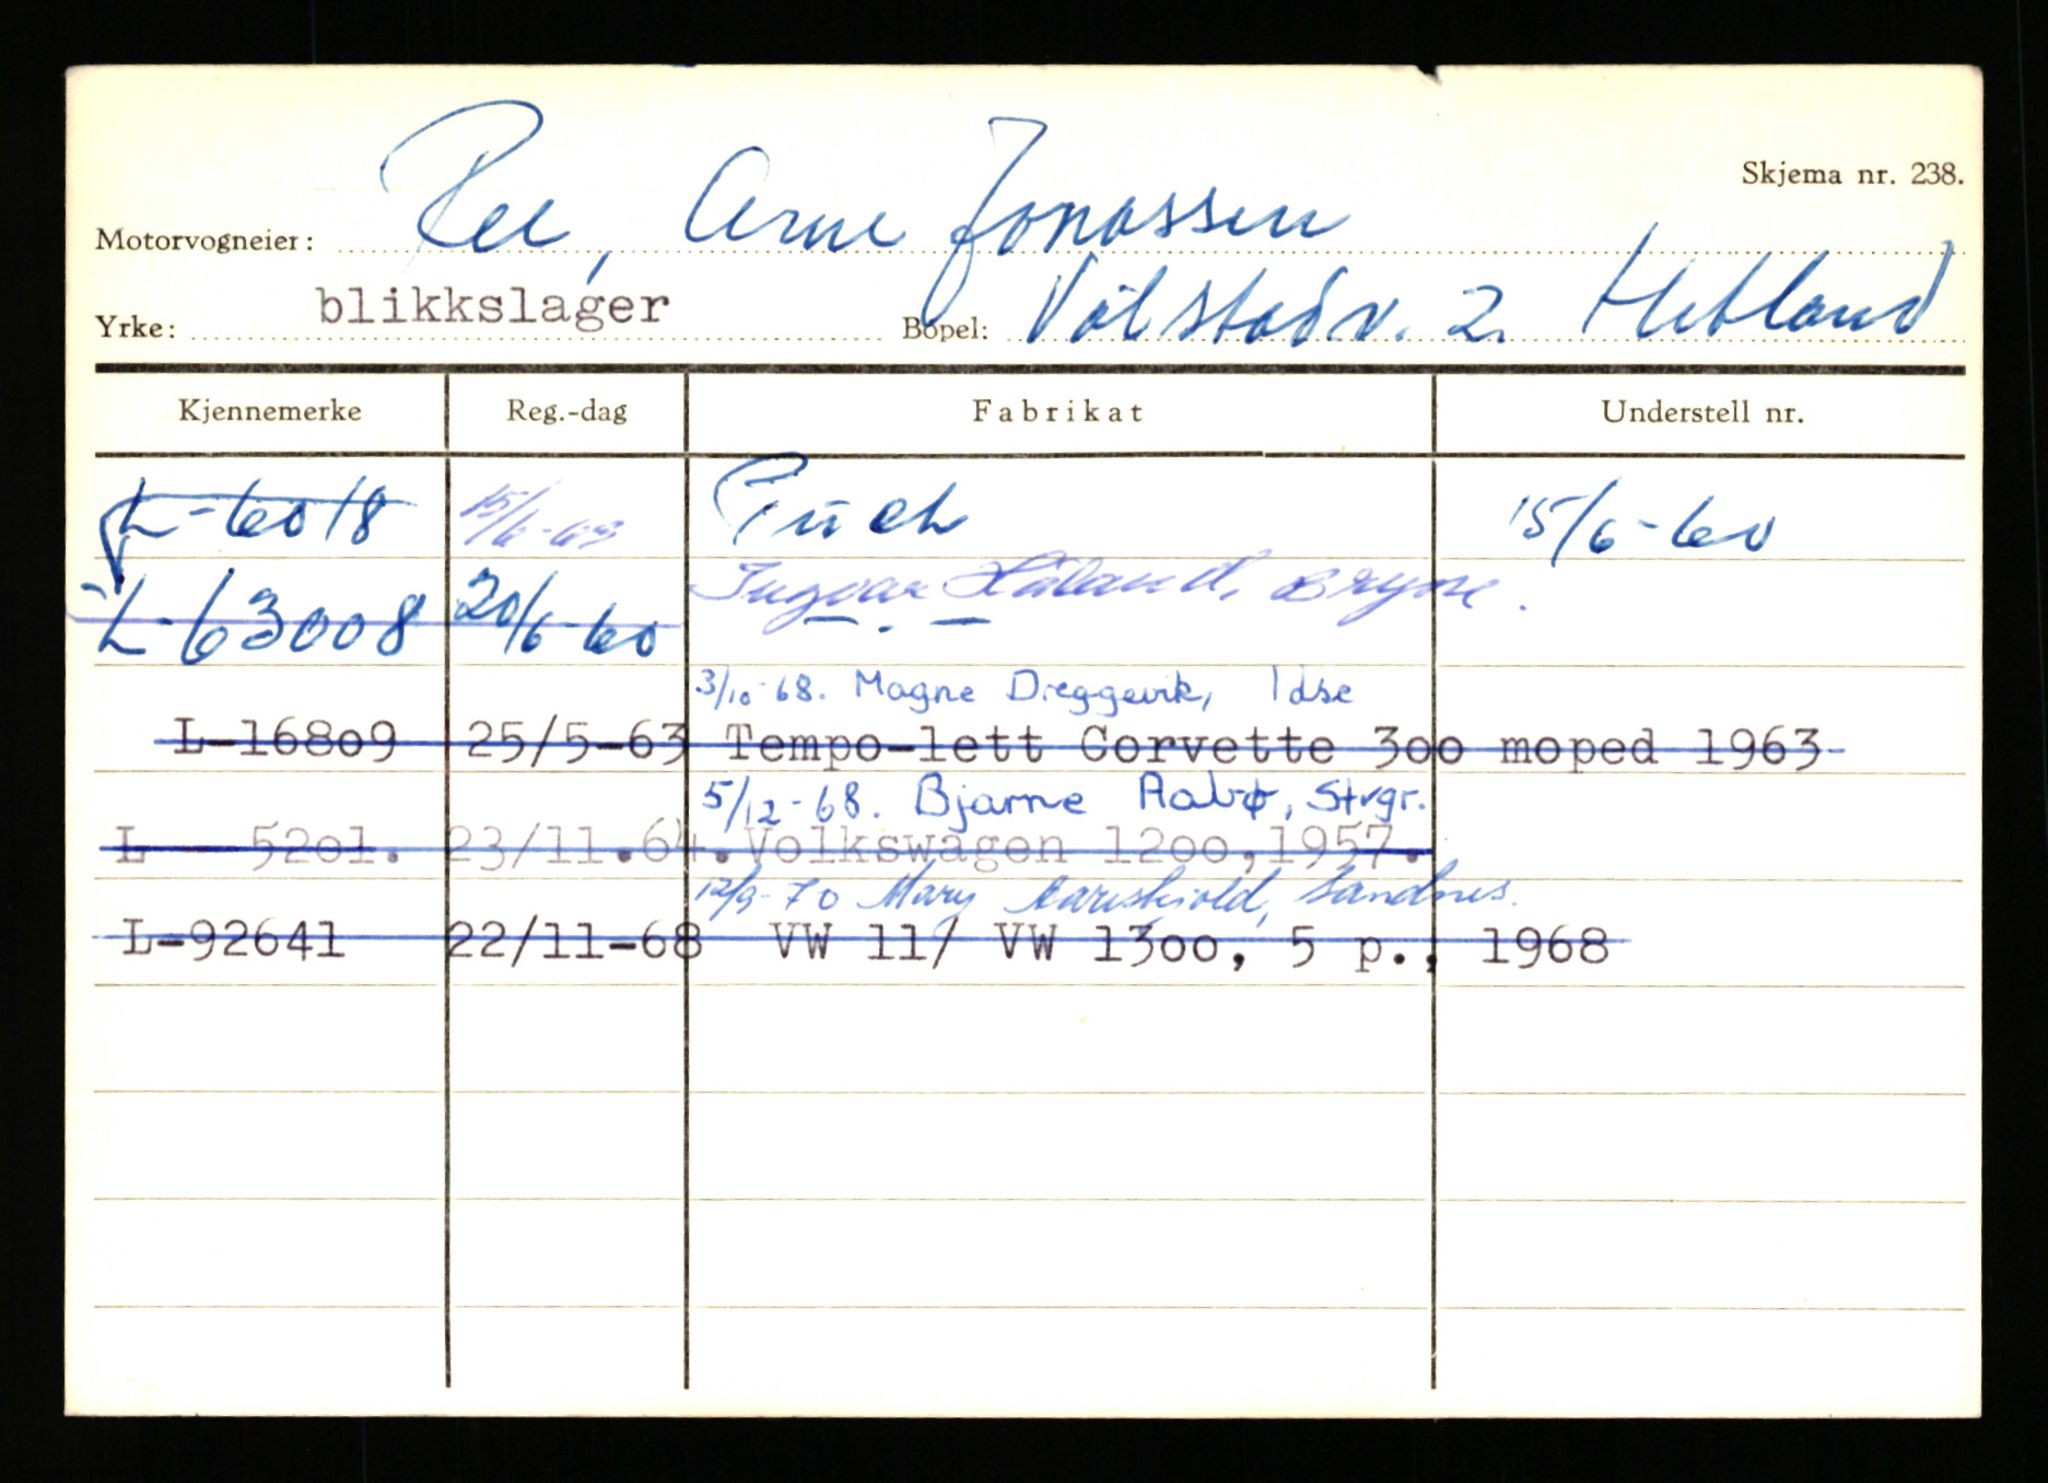 Skjema nr. 238.
Motorvogneier: Ree, Arne Jonassen
Yrke: blikkslager Bopel: Vålstadv. 2. Hetland
Kjennemerke Reg.-dag Fabrikat Understell nr.
L-6018 15/6-63 Puch 15/6-60
Ingvar Håland, Bryne.
L-63008 20/6-60 — . —
3/10-68. Magne Dreggevik, Idse
L-16809 25/5-63 Tempo-lett Corvette 3oo moped 1963
5/12-68. Bjarne Aabø, Strgr.
L - 52ol. 23/11.64. Volkswagen 12oo, 1957.
12/9-70 Mary Aareskjold, Sandnes.
L-92641 22/11-68 VW 11/ VW 13oo, 5 p., 1968